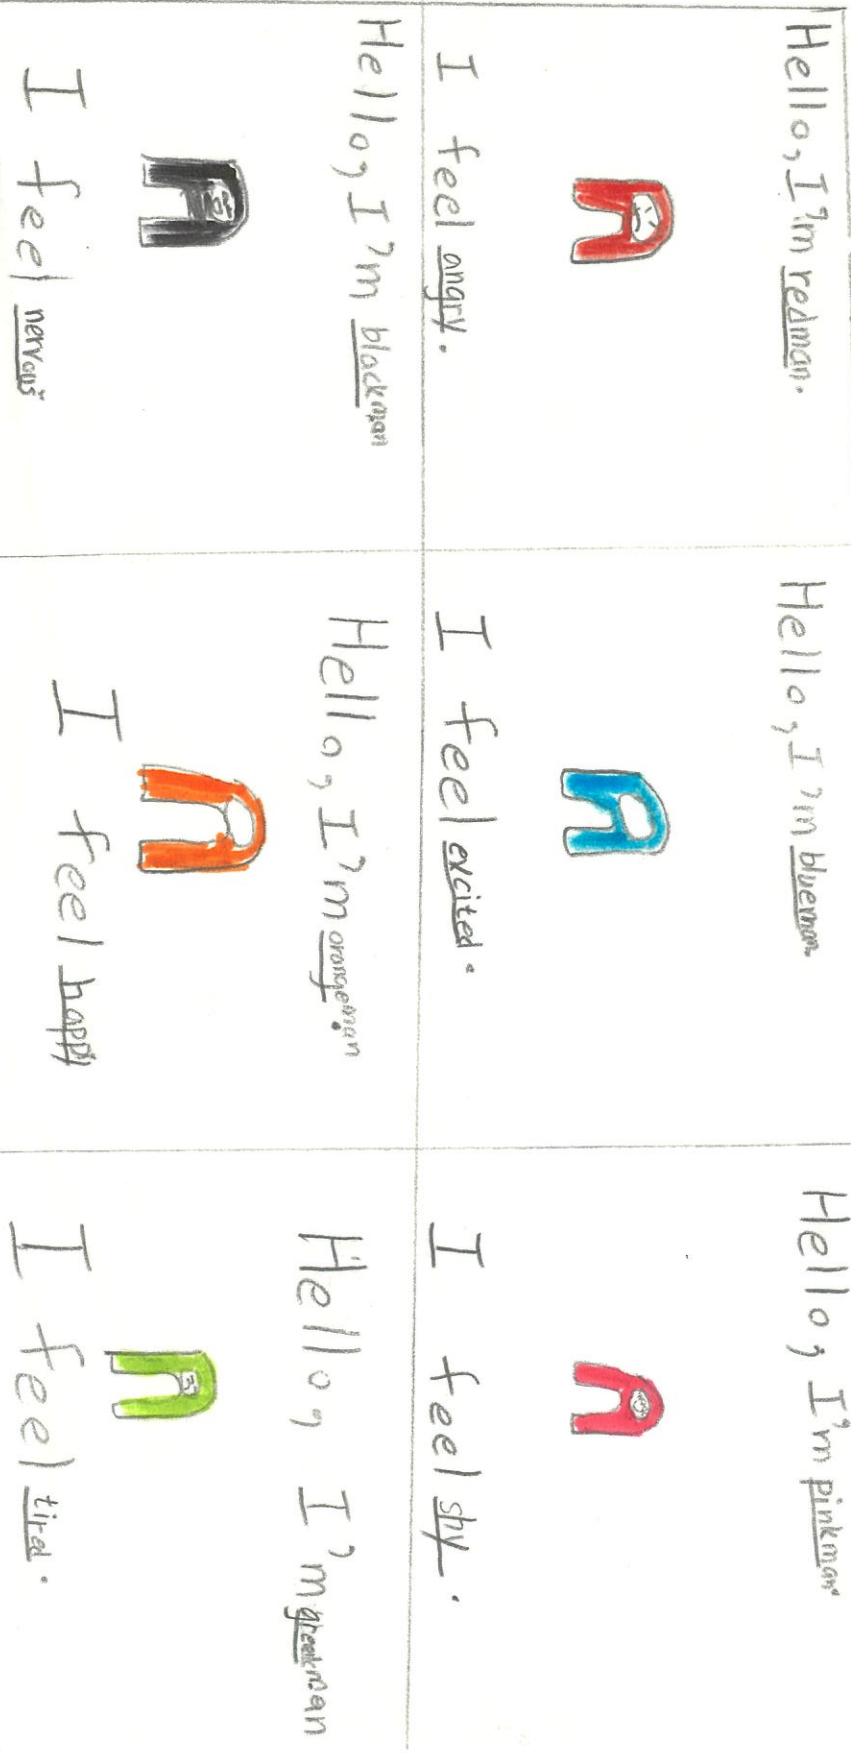 Hello, I'm redman.
I feel angry.
Hello, I'm blueman.
I feel excited.
Hello, I'm pinkman.
I feel shy.
Hello, I'm blackman
I feel nervous
Hello, I'm orangeman.
I feel happy
Hello, I'm greenman
I feel tired.